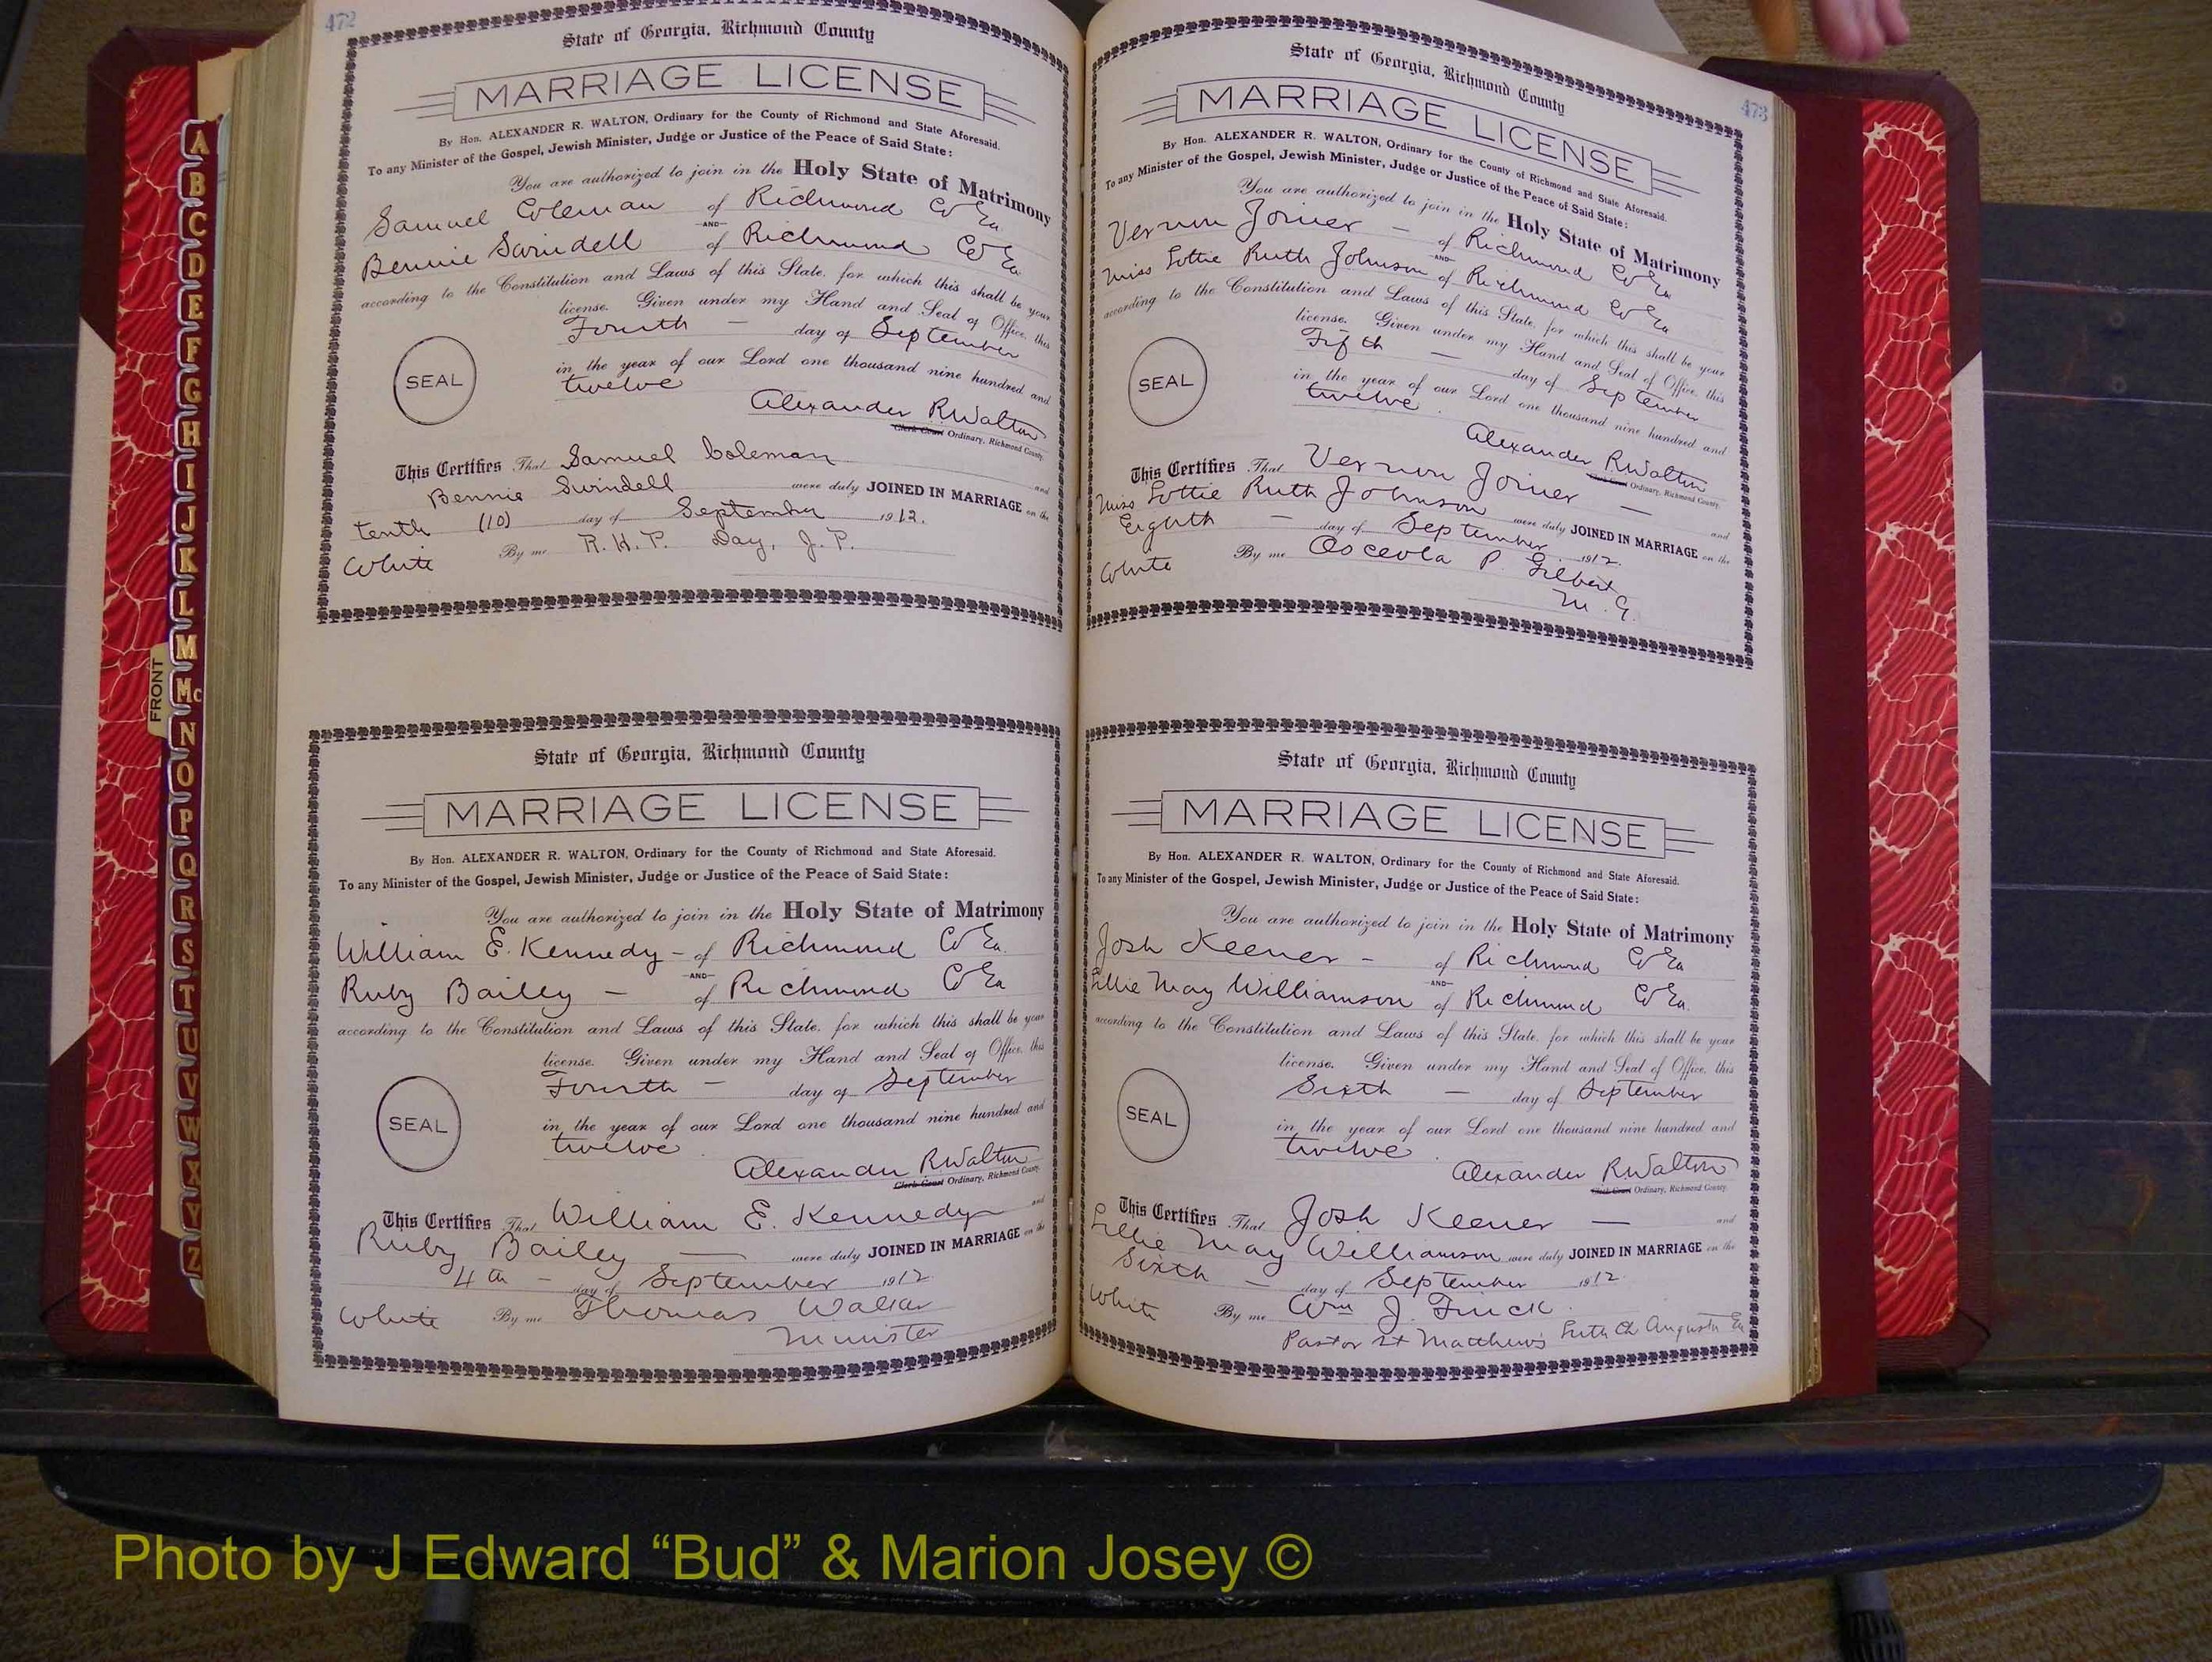 472
State of Georgia, Richmond County
MARRIAGE LICENSE
By Hon. ALEXANDER R. WALTON, Ordinary for the County of Richmond and State Aforesaid.
To any Minister of the Gospel, Jewish Minister, Judge or Justice of the Peace of Said State:
You are authorized to join in the Holy State of Matrimony
Samuel Coleman of Richmond Co Ga
—AND—
Bennie Swindell of Richmond Co Ga
according to the Constitution and Laws of this State, for which this shall be your
license. Given under my Hand and Seal of Office, this
Fourth — day of September
in the year of our Lord one thousand nine hundred and
twelve
SEAL
Alexander R Walton
Clerk Court Ordinary, Richmond County.
This Certifies That Samuel Coleman and
Bennie Swindell were duly JOINED IN MARRIAGE on the
tenth (10) day of September 1912.
White By me R. H. P. Day, J. P.
State of Georgia, Richmond County
MARRIAGE LICENSE
By Hon. ALEXANDER R. WALTON, Ordinary for the County of Richmond and State Aforesaid.
To any Minister of the Gospel, Jewish Minister, Judge or Justice of the Peace of Said State:
You are authorized to join in the Holy State of Matrimony
William E. Kennedy – of Richmond Co Ga.
—AND—
Ruby Bailey — of Richmond Co Ga
according to the Constitution and Laws of this State, for which this shall be your
license. Given under my Hand and Seal of Office, this
Fourth — day of September
in the year of our Lord one thousand nine hundred and
twelve
SEAL
Alexander R Walton
Clerk Court Ordinary, Richmond County.
This Certifies That William E. Kennedy and
Ruby Bailey — were duly JOINED IN MARRIAGE on the
4th – day of September 1912
White By me Thomas Walker
Minister
473
State of Georgia, Richmond County
MARRIAGE LICENSE
By Hon. ALEXANDER R. WALTON, Ordinary for the County of Richmond and State Aforesaid.
To any Minister of the Gospel, Jewish Minister, Judge or Justice of the Peace of Said State:
You are authorized to join in the Holy State of Matrimony
Vernon Joiner – of Richmond Co Ga
—AND—
Miss Lottie Ruth Johnson of Richmond Co Ga
according to the Constitution and Laws of this State, for which this shall be your
license. Given under my Hand and Seal of Office, this
Fifth — day of September
in the year of our Lord one thousand nine hundred and
twelve
SEAL
Alexander R Walton
Clerk Court Ordinary, Richmond County.
This Certifies That Vernon Joiner — and
Miss Lottie Ruth Johnson were duly JOINED IN MARRIAGE on the
Eighth – day of September 1912.
White By me Osceola P. Gilbert
M. G.
State of Georgia, Richmond County
MARRIAGE LICENSE
By Hon. ALEXANDER R. WALTON, Ordinary for the County of Richmond and State Aforesaid.
To any Minister of the Gospel, Jewish Minister, Judge or Justice of the Peace of Said State:
You are authorized to join in the Holy State of Matrimony
Josh Keener – of Richmond Co Ga
—AND—
Lillie May Williamson of Richmond Co Ga.
according to the Constitution and Laws of this State, for which this shall be your
license. Given under my Hand and Seal of Office, this
Sixth — day of September
in the year of our Lord one thousand nine hundred and
twelve
SEAL
Alexander R Walton
Clerk Court Ordinary, Richmond County.
This Certifies That Josh Keener — and
Lillie May Williamson were duly JOINED IN MARRIAGE on the
Sixth – day of September 1912
White By me Wm J. Finck
Pastor St Matthews Luth Ch Augusta Ga
A
B
C
D
E
F
G
H
I
J
K
L
M
Mc
N
O
P
Q
R
S
T
U
V
W
X
Y
Z
FRONT
Photo by J Edward “Bud” & Marion Josey ©